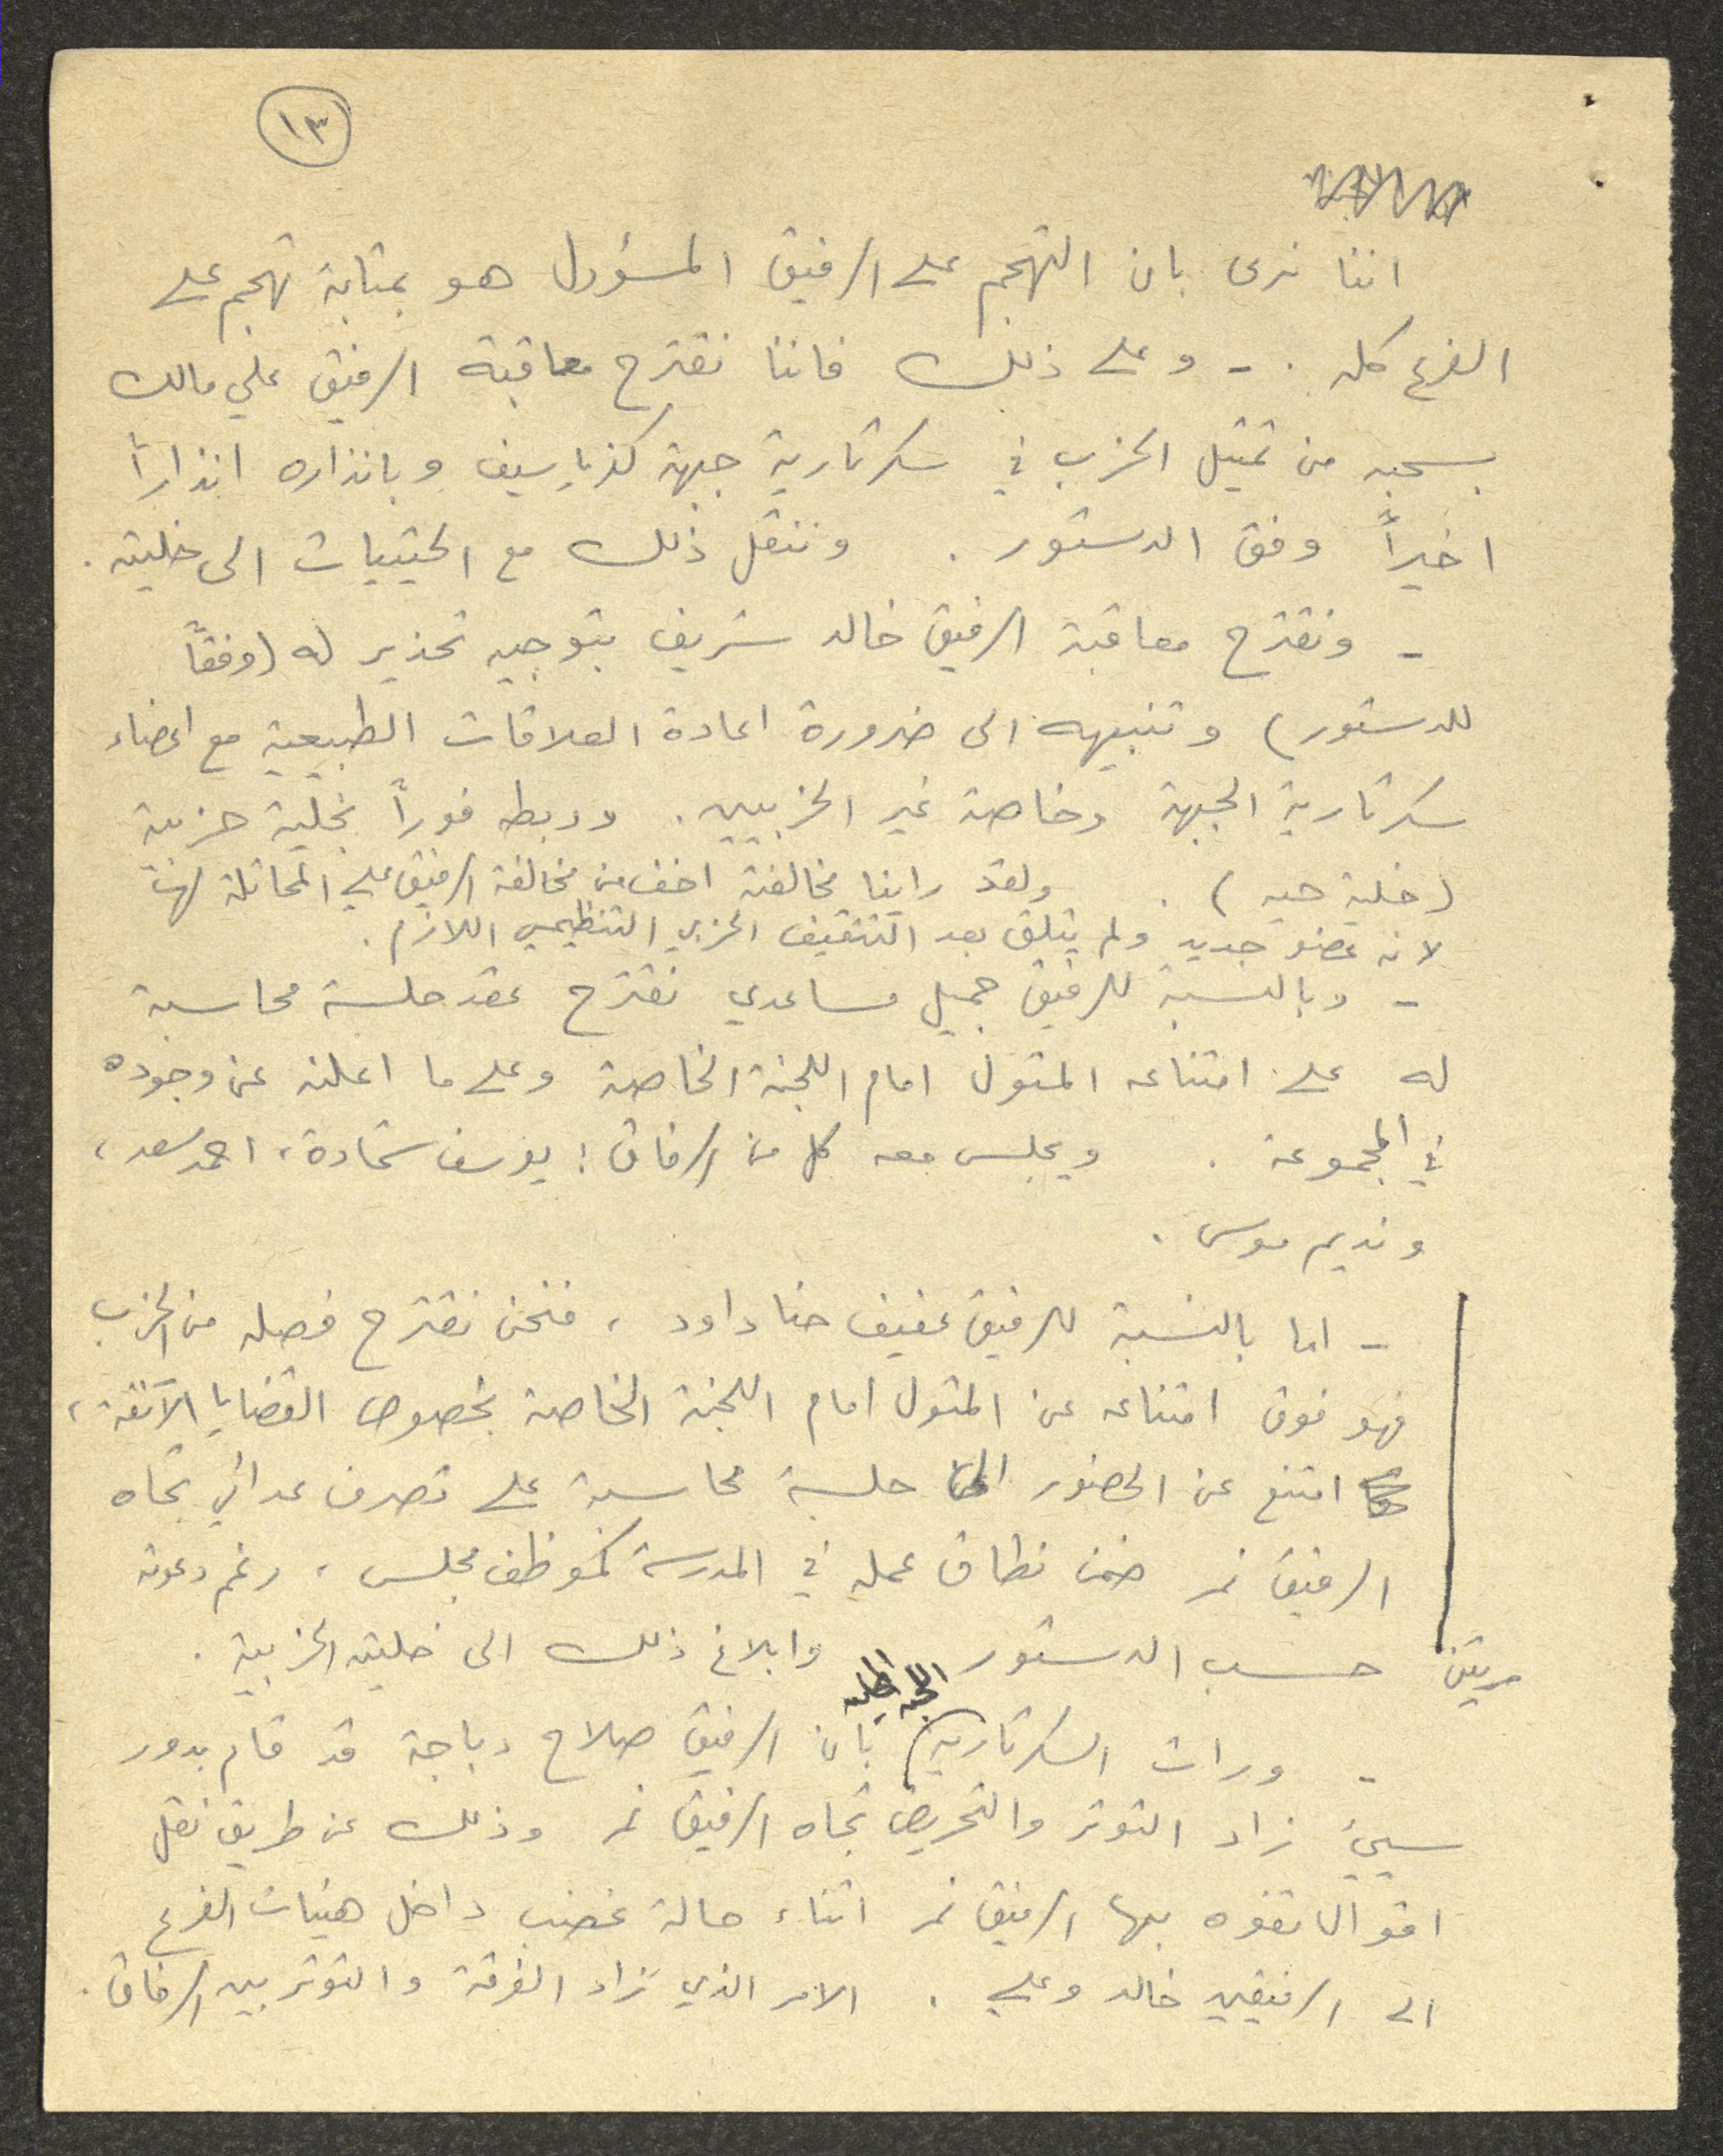 ١٣
اننا نرى بان التهجم على الرفيق المسؤول هو بمثابة تهجم على
الفرع كله . - وعلى ذلك فاننا نقترح معاقبة الرفيق علي مالك
بسحبه من تمثيل الحزب في سكرتارية جبهة كفرياسيف وبانذاره انذاراً
اخيراً وفق الدستور . وننقل ذلك مع الحيثيات الى خليته .
- ونقترح معاقبة الرفيق خالد شريف بتوجيه تحذير له (وفقاً
للدستور) وتنبيهه الى ضرورة اعادة العلاقات الطبيعية مع اعضاء
سكرتارية الجبهة وخاصة غير الحزبيين . وربطه فوراً بخلية حزبية
(خلية حيه) . ولقد راينا مخالفته اخف من مخالفة الرفيق علي المماثلة لها
لانه عضو جديد ولم يتلق بعد التثقيف الحزبي التنظيمي اللازم .
- وبالنسبة للرفيق جميل مساعدي نقترح عقد جلسة محاسبة
له على امتناعه المثول امام اللجنة الخاصة وعلى ما اعلنه عن وجوده
في المجموعة . ويجلس معه كل من الرفاق : يوسف شحادة ، احمد سعد ،
ونديم موسى .
- اما بالنسبة للرفيق عفيف حنا داود ، فنحن نقترح فصله من الحزب
فهو فوق امتناعه عن المثول امام اللجنة الخاصة بخصوص القضايا الآنفة ،
امتنع عن الحضور الى جلسة محاسبة على تصرف عدائي تجاه
الرفيق نمر ضمن نطاق عمله في المدرسة كموظف مجلس ، رغم دعوته
مرتين حسب الدستور وابلاغ ذلك الى خليته الحزبية .
اللجنة المحلية
- ورات السكرتارية بان الرفيق صلاح دباجة قد قام بدور
سيئ زاد التوتر والتحريض تجاه الرفيق نمر وذلك عن طريق نقل
اقوالا تفوه بها الرفيق نمر اثناء حالة غضب داخل هيئات الفرع
الى الرفيقين خالد وعلي . الامر الذي زاد الفرقة والتوتر بين الرفاق .